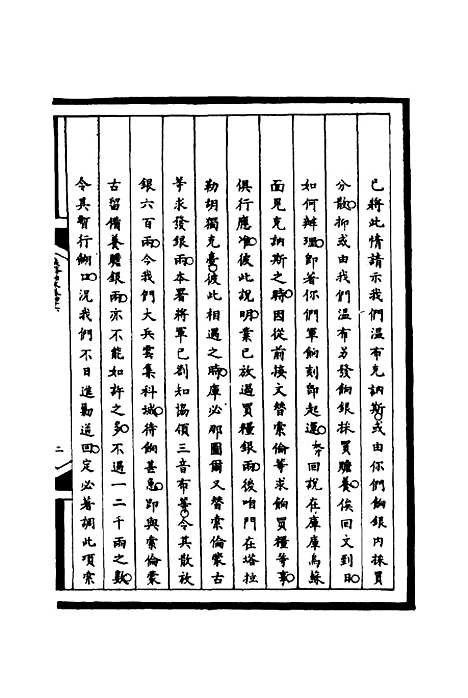 已將此情請示我們溫布克訥斯或由你們餉銀內採買
分散抑或由我們溫布另發餉銀採買贍養俟回文到日
如何辦理即著你們軍餉刻卽起還等回說在庫庫烏蘇
面見克訥斯之時因從前接文替索倫等求餉買糧等事
俱行應准彼此說明業已放過買糧銀兩後咱門在塔拉
勒胡獨克臺彼此相遇之時庫必那圖爾又替索倫蒙古
等求發銀兩本署將軍已劄知協領三音布等令其散放
銀六百兩今我們大兵雲集科城待餉甚急卽與索倫蒙
古留備養贍銀兩亦不能如許之多不過一二千兩之數
令其暫行餬口況我們不日進勦道回定必著調此項索
二